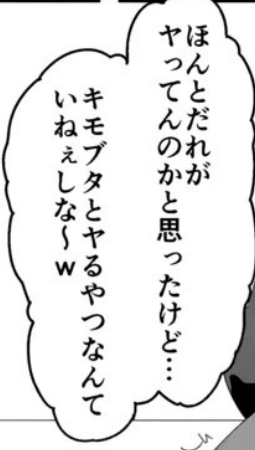 ほんとだれが
ヤってんのかと思ったけど…
キモブタとヤるやつなんて
いねぇしな～w